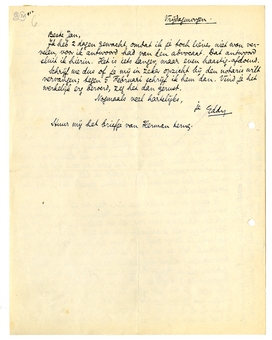 Vrijdagmorgen.
Beste Jan,
Ik heb 2 dagen gewacht, omdat ik je toch liever niet wou ver-
velen voor ik antwoord had van den advocaat. Dat antwoord
sluit ik hierin. Het is iets langer maar even haastig-afdoend.
Schrijf me dus of je mij in zeker opzicht bij den notaris wilt
vervangen; tegen 5 Februari schrijf ik hem dan. Vind je het
werkelijk bezwaarend, zeg het dan gerust.
Nogmaals veel hartelijks,
je Eddy
Stuur mij het briefje van Herman terug.